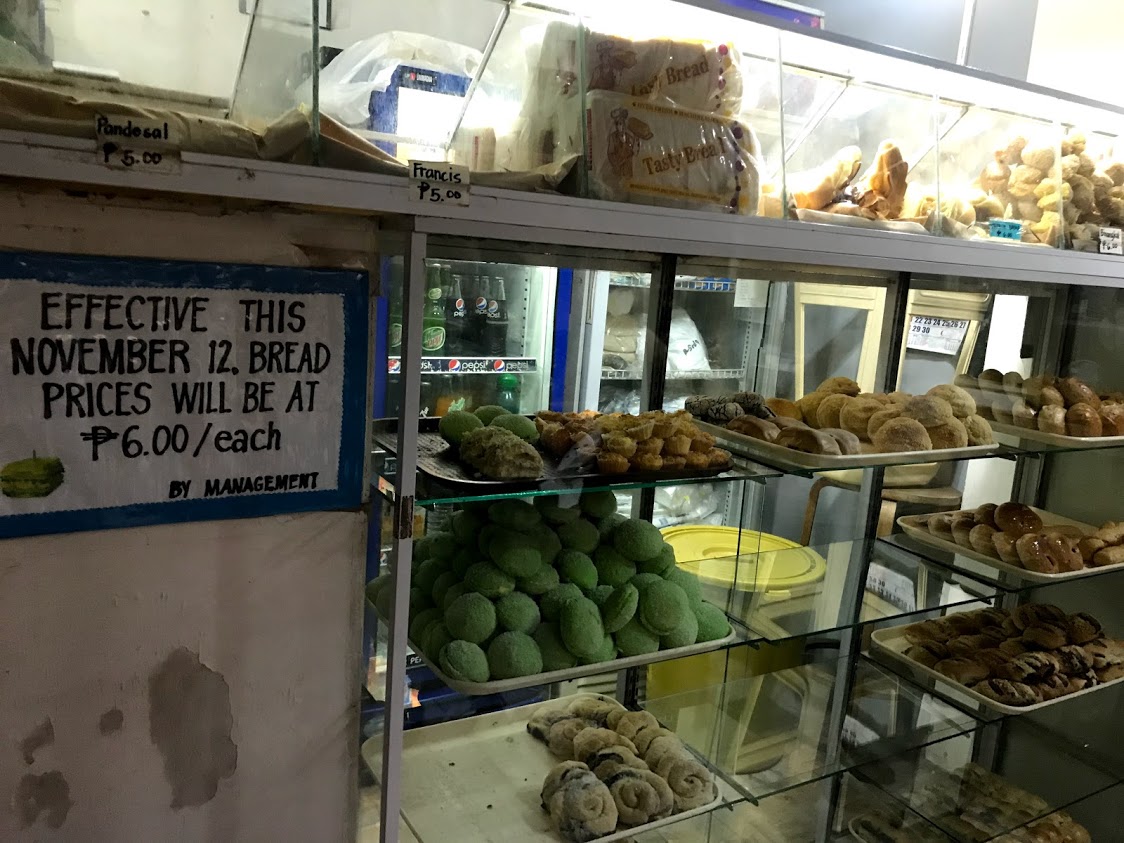 Pandesal
₱5.00
Francis
₱5.00
Tasty Bread
Tasty Bread
EFFECTIVE THIS
NOVEMBER 12, BREAD
PRICES WILL BE AT
₱6.00/each
BY MANAGEMENT
pepsi
pepsi
22 23 24 25 26 27
29 30